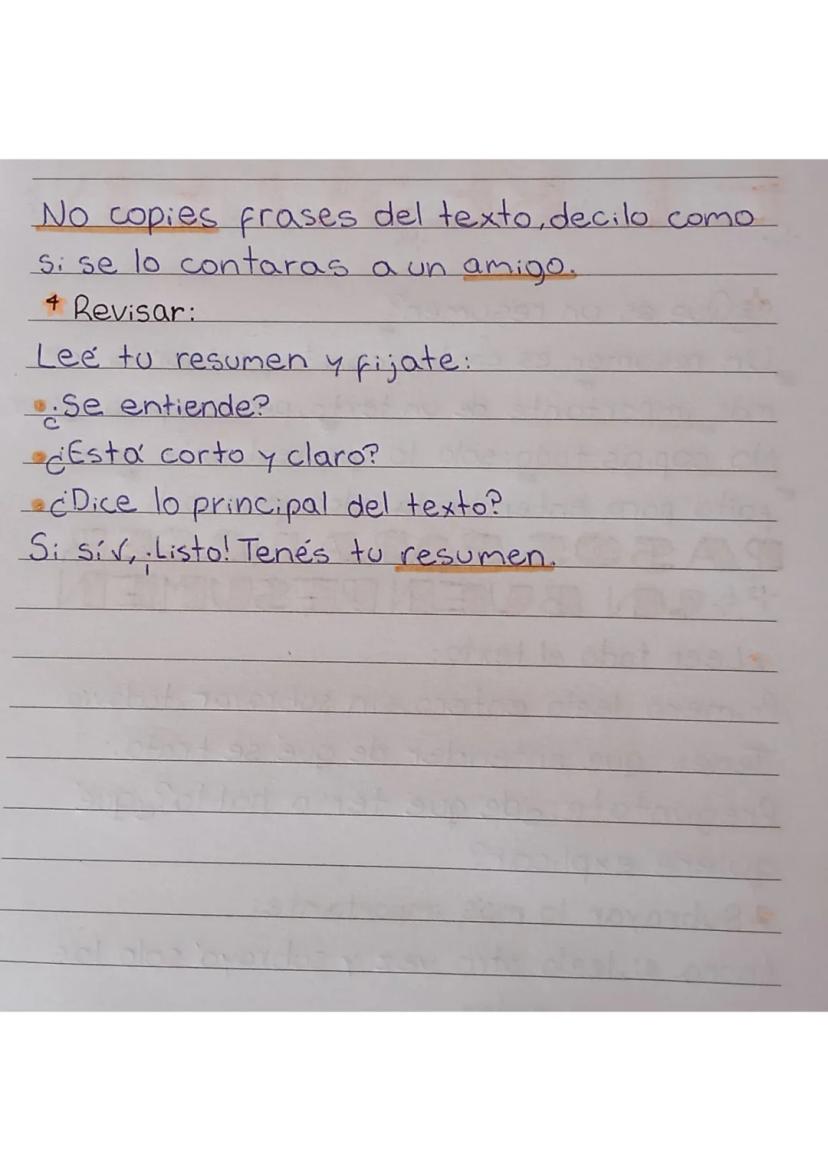 No copies frases del texto, decilo como
si se lo contaras a un amigo.
4 Revisar:
Leé tu resumen y fijate:
• ¿Se entiende?
• ¿Está corto y claro?
• ¿Dice lo principal del texto?
Si sí√, ¡Listo! Tenés tu resumen.